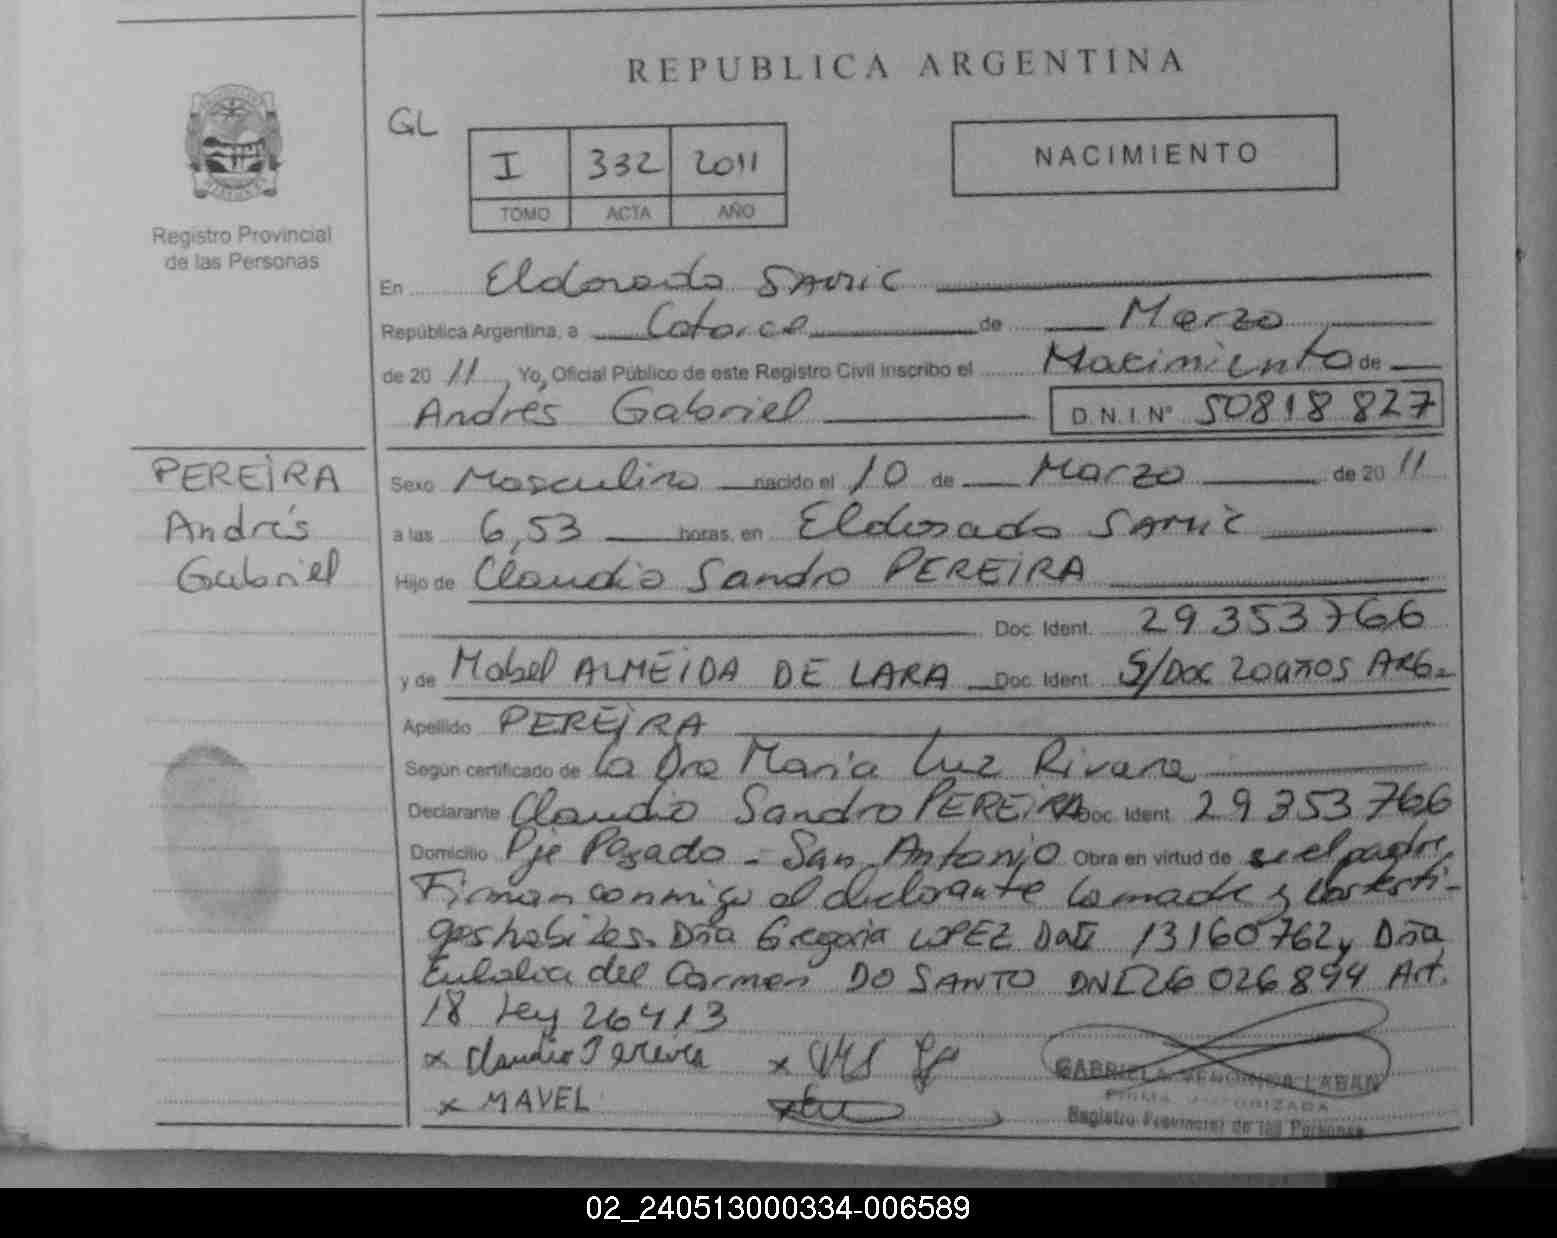 REPUBLICA ARGENTINA
GL
I 332 2011
TOMO ACTA AÑO
NACIMIENTO
Registro Provincial
de las Personas
En Eldorado SAMIC
República Argentina, a Catorce de Marzo
de 20 11, Yo, Oficial Público de este Registro Civil inscribo el Nacimiento de
Andrés Gabriel D.N.I. Nº 50818827
PEREIRA
Andrés
Gabriel
Sexo Masculino nacido el 10 de Marzo de 20 11
a las 6,53 horas, en Eldorado SAMIC
Hijo de Claudio Sandro PEREIRA
Doc. Ident. 29353766
y de Mabel ALMEIDA DE LARA Doc. Ident. S/Doc 20años ARG.
Apellido PEREIRA
Según certificado de la Dra Maria Luz Rivara
Declarante Claudio Sandro PEREIRA Doc. Ident. 29353766
Domicilio Pje Posado - San Antonio Obra en virtud de ser el padre,
Firman conmigo el declarante la madre y los testi-
gos habiles. Dña Gregoria LOPEZ 13160762 y Dña
Eulalia del Carmen DO SANTO DNI 26026894 Art.
18 Ley 26413
x Claudio Pereira x
x MAVEL
GABRIELA LABAN
FIRMA AUTORIZADA
Registro Provincial de las Personas
02_240513000334-006589